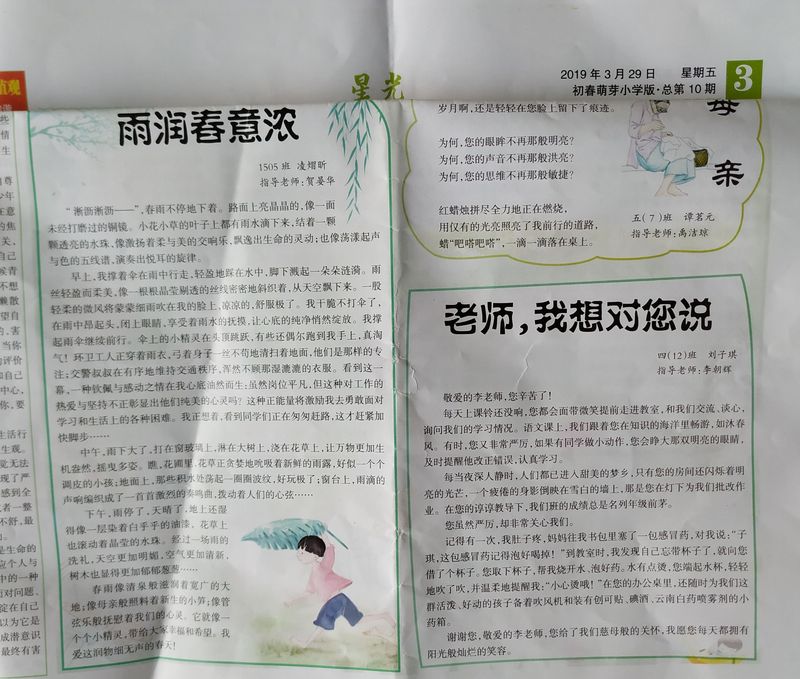 星光
2019 年 3 月 29 日 星期五
初春萌芽小学版·总第 10 期
3
雨润春意浓
1505 班 凌熠昕
指导老师:贺晏华
“淅沥淅沥——”,春雨不停地下着。路面上亮晶晶的,像一面
未经打磨过的铜镜。小花小草的叶子上都有雨水滴下来,结着一颗
颗透亮的水珠,像激扬着柔与美的交响乐,飘逸出生命的灵动;也像荡漾起声
与色的五线谱,演奏出悦耳的旋律。
早上,我撑着伞在雨中行走,轻盈地踩在水中,脚下溅起一朵朵涟漪。雨
丝轻盈而柔美,像一根根晶莹剔透的丝线密密地斜织着,从天空飘下来。一股
轻柔的微风将蒙蒙细雨吹在我的脸上,凉凉的,舒服极了。我干脆不打伞了,
在雨中昂起头,闭上眼睛,享受着雨水的抚摸,让心底的纯净悄然绽放。我撑
起雨伞继续前行。伞上的小精灵在头顶跳跃,有些还偶尔跑到我手上,真淘
气！环卫工人正穿着雨衣,弓着身子一丝不苟地清扫着地面,他们是那样的专
注;交警叔叔在有序地维持交通秩序,浑然不顾那湿漉漉的衣服。看到这一
幕,一种钦佩与感动之情在我心底油然而生:虽然岗位平凡,但这种对工作的
热爱与坚持不正彰显出他们纯美的心灵吗？这种正能量将激励我去勇敢面对
学习和生活上的各种困难。我正想着,看到同学们正在匆匆赶路,这才赶紧加
快脚步……
中午,雨下大了,打在窗玻璃上,淋在大树上,浇在花草上,让万物更加生
机盎然,摇曳多姿。瞧,花圃里,花草正贪婪地吮吸着新鲜的雨露,好似一个个
调皮的小孩;地面上,那些积水处荡起一圈圈波纹,好玩极了;窗台上,雨滴的
声响编织成了一首首激烈的奏鸣曲,拨动着人们的心弦……
下午,雨停了,天晴了,地上还湿
得像一层染着白乎乎的油漆。花草上
也滚动着晶莹的水珠。经过一场雨的
洗礼,天空更加明媚,空气更加清新,
树木也显得更加郁郁葱葱……
春雨像清泉般滋润着宽广的大
地;像母亲般照料着新生的小笋;像管
弦乐般抚慰着我们的心灵。它就像一
个个小精灵,带给大家幸福和希望。我
爱这润物细无声的春天！
岁月啊,还是轻轻在您脸上留下了痕迹。
为何,您的眼眸不再那般明亮?
为何,您的声音不再那般洪亮?
为何,您的思维不再那般敏捷?
红蜡烛拼尽全力地正在燃烧,
用仅有的光亮照亮了我前行的道路,
蜡“吧嗒吧嗒”,一滴一滴落在桌上。
母亲
五(7)班 谭茗元
指导老师:禹洁琼
老师,我想对您说
四(12)班 刘子琪
指导老师:李朝辉
敬爱的李老师,您辛苦了!
每天上课铃还没响,您都会面带微笑提前走进教室,和我们交流、谈心,
询问我们的学习情况。语文课上,我们跟着您在知识的海洋里畅游,如沐春
风。有时,您又非常严厉,如果有同学做小动作,您会睁大那双明亮的眼睛,
及时提醒他改正错误,认真学习。
每当夜深人静时,人们都已进入甜美的梦乡,只有您的房间还闪烁着明
亮的光芒,一个疲倦的身影倒映在雪白的墙上,那是您在灯下为我们批改作
业。在您的谆谆教导下,我们班的成绩总是名列年级前茅。
您虽然严厉,却非常关心我们。
记得有一次,我肚子疼,妈妈往我书包里塞了一包感冒药,对我说:“子
琪,这包感冒药记得泡好喝掉！”到教室时,我发现自己忘带杯子了,就向您
借了个杯子。您取下杯子,帮我烧开水、泡好药。水有点烫,您端起水杯,轻轻
地吹了吹,并温柔地提醒我:“小心烫哦！”在您的办公桌里,还随时为我们这
群活泼、好动的孩子备着吹风机和装有创可贴、碘酒、云南白药喷雾剂的小
药箱。
谢谢您,敬爱的李老师,您给了我们慈母般的关怀,我愿您每天都拥有
阳光般灿烂的笑容。